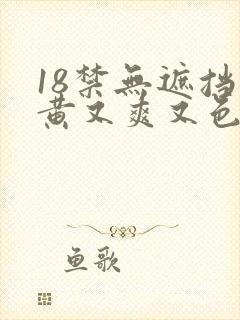 18禁無遮挡
黄又爽又色
鱼歌